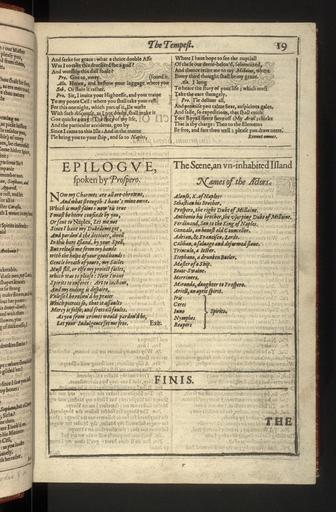 The Tempest.
19
And seeke for grace: what a thrice double Asse
Was I to take this drunkard for a god?
And worship this dull foole?
Pro. Goe to, away.
Alo. Hence, and bestow your luggage where you found it.
Seb. Or stole it rather.
Pro. Sir, I inuite your Highnesse, and your traine
To my poore Cell: where you shall take your rest
For this one night, which part of it, Ile waste
With such discourse, as I not doubt, shall make it
Goe quicke away: The story of my life,
And the particular accidents, gon by
Since I came to this Isle: And in the morne
I'le bring you to your ship, and so to Naples,
Where I haue hope to see the nuptiall
Of these our deere-belou'd, solemnized,
And thence retire me to my Millaine, where
Euery third thought shall be my graue.
Alo. I long
To heare the story of your life; which must
Take the eare strangely.
Pro. I'le deliuer all,
And promise you calme Seas, auspicious gales,
And saile, so expeditious, that shall catch
Your Royall fleete farre off: My Ariel; chicke
That is thy charge: Then to the Elements
Be free, and fare thou well: please you draw neere.
Exeunt omnes.
EPILOGVE,
spoken by Prospero.
Now my Charmes are all ore-throwne,
And what strength I haue's mine owne.
Which is most faint: now 'tis true
I must be heere confinde by you,
Or sent to Naples, Let me not
Since I haue my Dukedome got,
And pardon'd the deceiuer, dwell
In this bare Island, by your Spell,
But release me from my bands
With the helpe of your good hands:
Gentle breath of yours, my Sailes
Must fill, or else my proiect failes,
Which was to please: Now I want
Spirits to enforce: Art to inchant,
And my ending is despaire,
Vnlesse I be relieu'd by praier
Which pierces so, that it assaults
Mercy it selfe, and frees all faults.
As you from crimes would pardon'd be,
Let your Indulgence set me free. Exit.
The Scene, an vn-inhabited Island
Names of the Actors.
Alonso, K. of Naples:
Sebastian his Brother.
Prospero, the right Duke of Millaine.
Anthonio his brother, the vsurping Duke of Millaine.
Ferdinand, Son to the King of Naples.
Gonzalo, an honest old Councellor.
Adrian, & Francisco, Lords.
Caliban, a saluage and deformed slaue.
Trinculo, a Iester.
Stephano, a drunken Butler.
Master of a Ship.
Boate-Swaine.
Marriners.
Miranda, daughter to Prospero.
Ariell, an ayrie spirit.
Iris
Ceres
Iuno
Nymphes
Reapers
Spirits.
FINIS.
THE